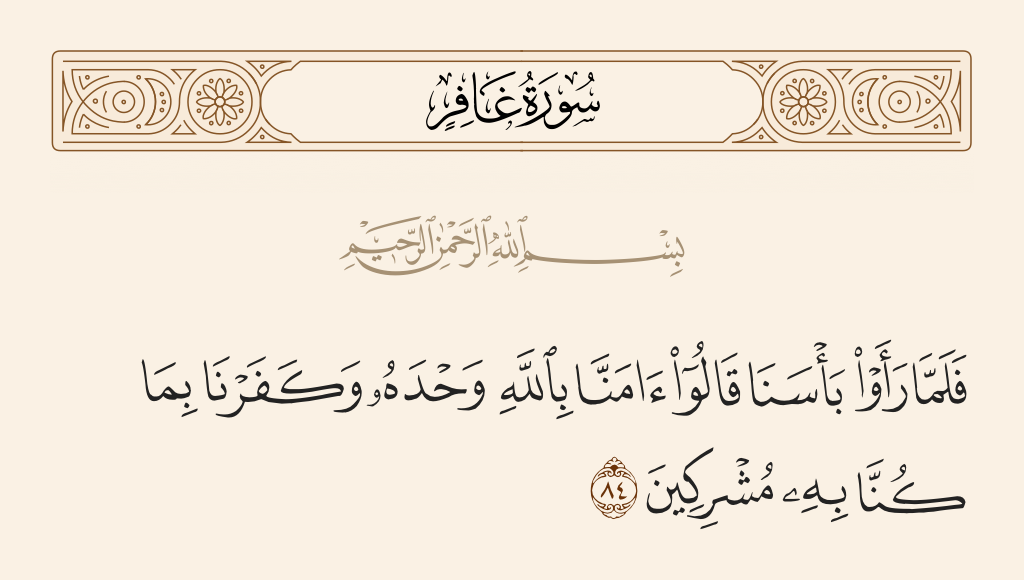 سُورَةُ غَافِرٍ
بِسْمِ ٱللَّهِ ٱلرَّحْمَٰنِ ٱلرَّحِيمِ
فَلَمَّا رَأَوْا۟ بَأْسَنَا قَالُوٓا۟ ءَامَنَّا بِٱللَّهِ وَحْدَهُۥ وَكَفَرْنَا بِمَا
كُنَّا بِهِۦ مُشْرِكِينَ ٨٤